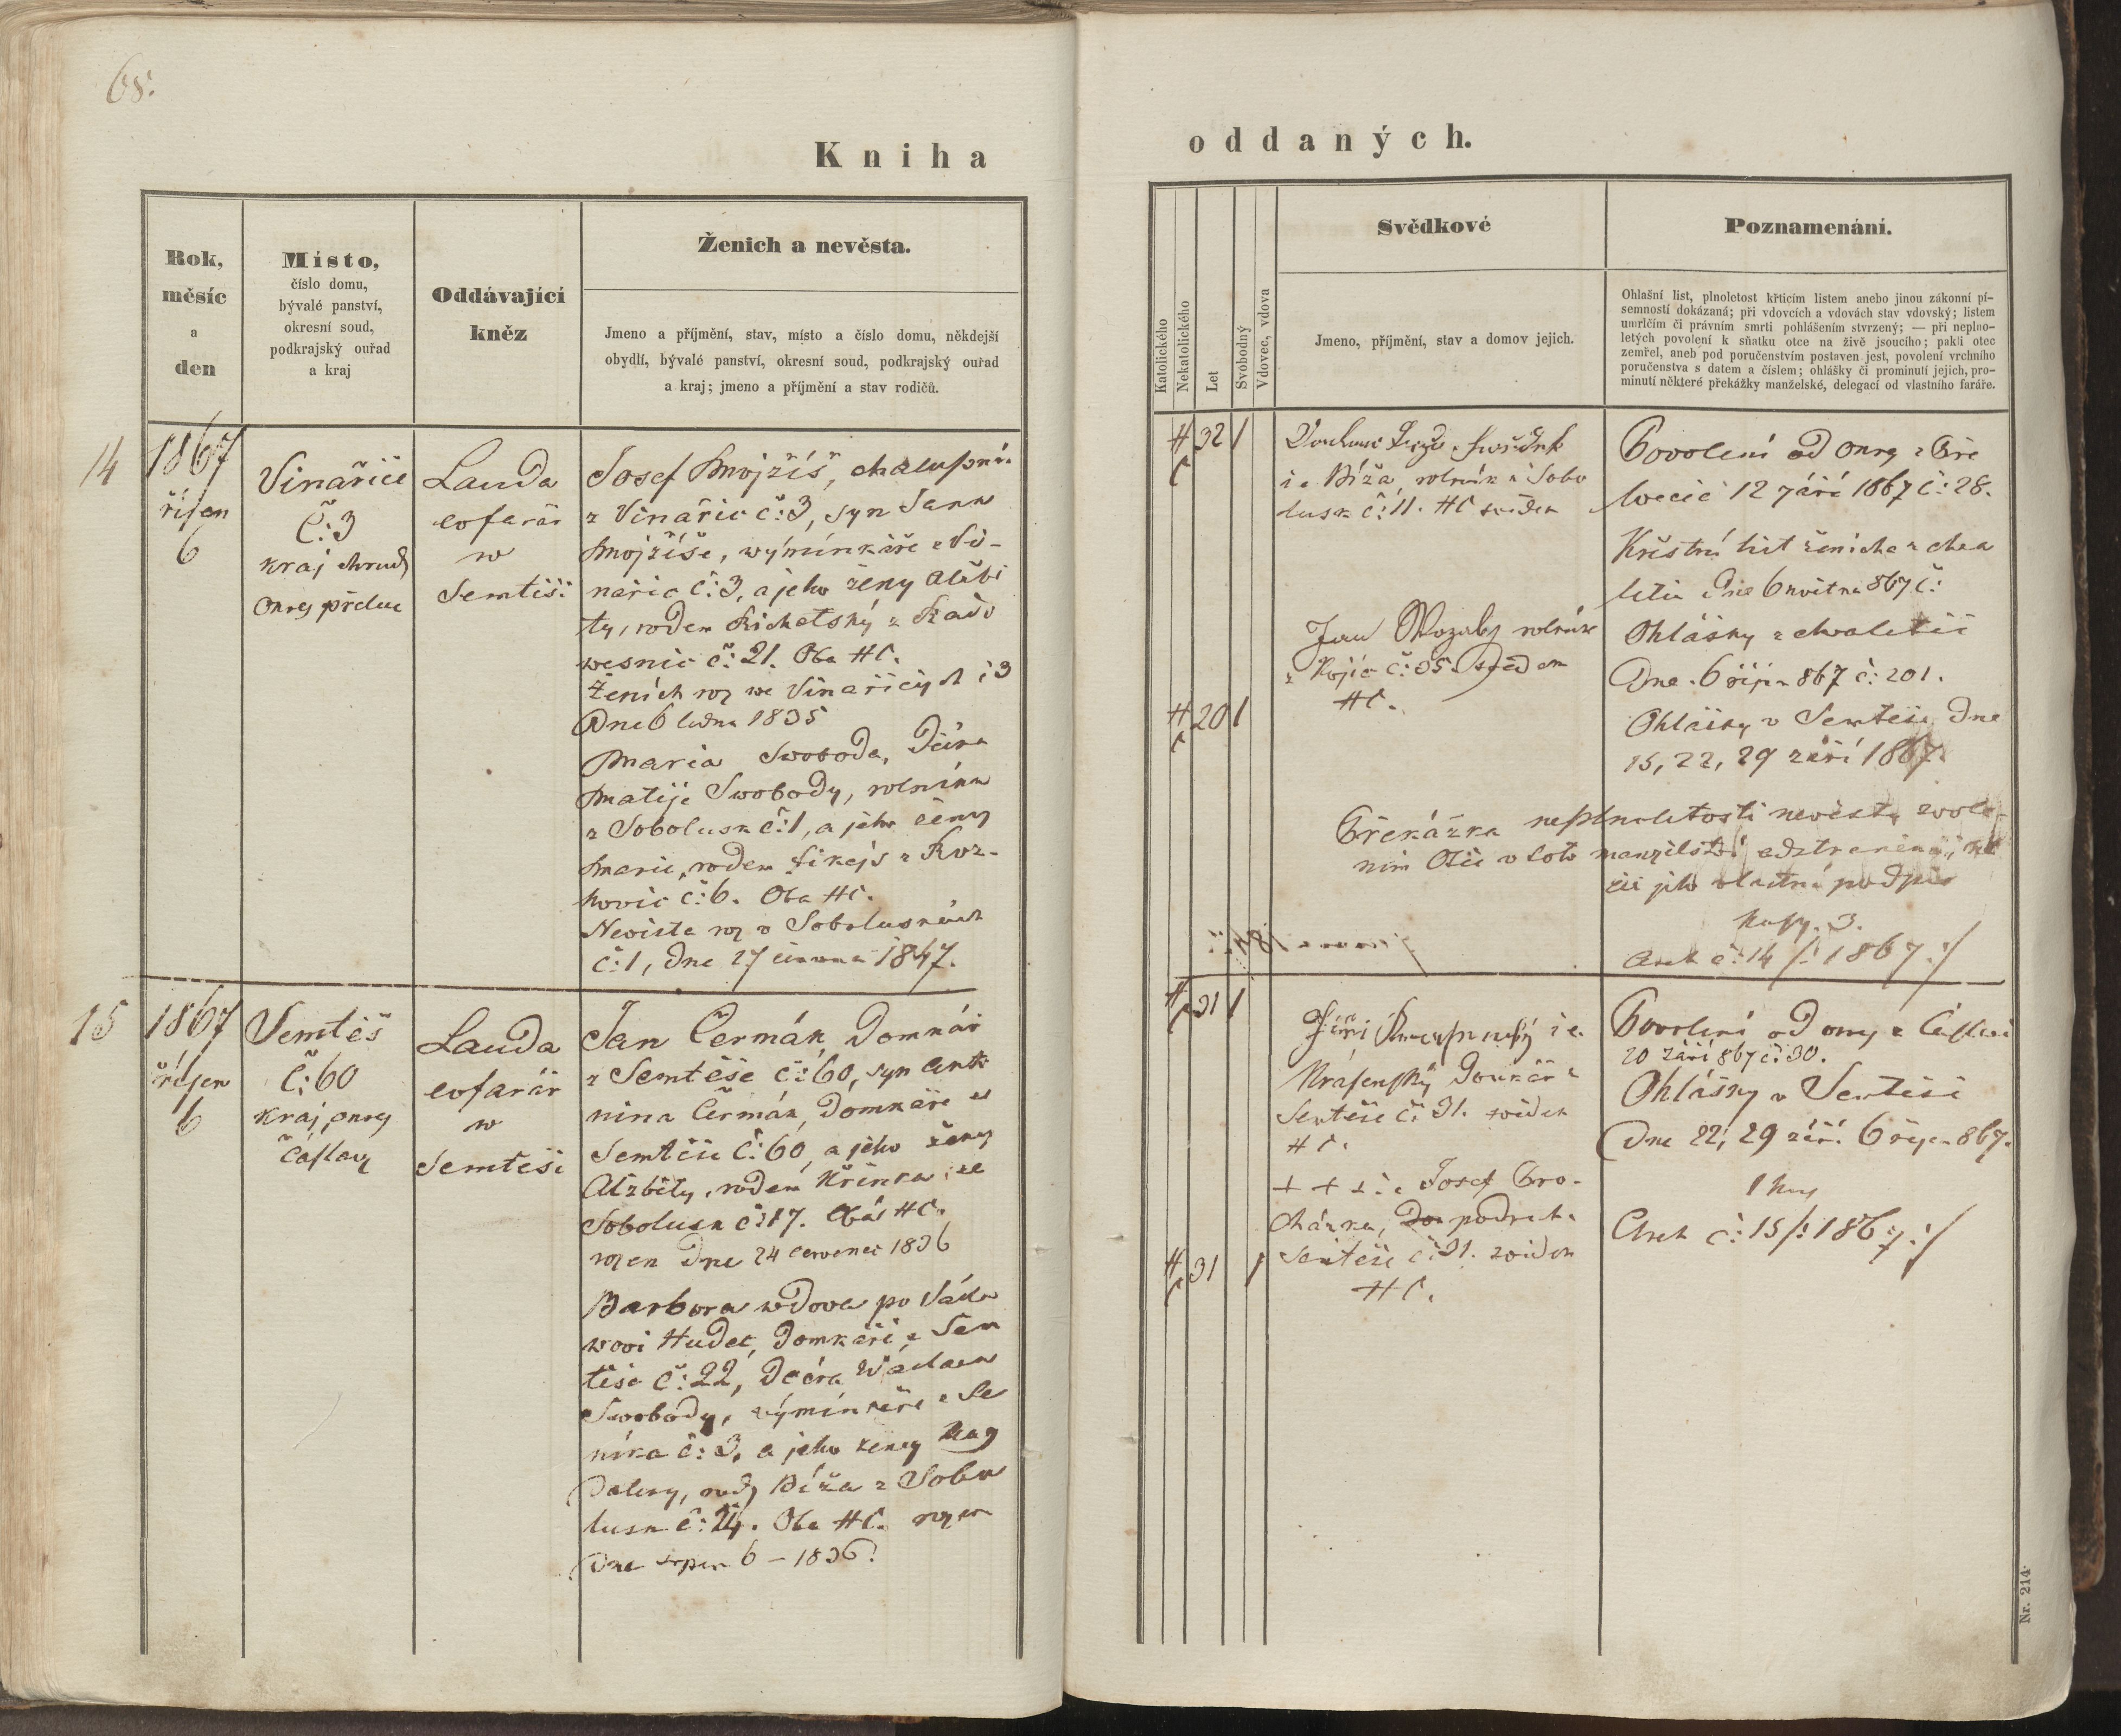 68.
Kniha
Rok,
měsíc
a
den
Místo,
číslo domu,
bývalé panství,
okresní soud,
podkrajský ouřad
a kraj
Oddávající
kněz
Ženich a nevěsta.
Jmeno a příjmění, stav, místo a číslo domu, někdejší
obydlí, bývalé panství, okresní soud, podkrajský ouřad
a kraj; jmeno a příjmění a stav rodičů.
14
1867
říjen
6
Vinařice
č: 3
kraj chrud
okres přelouč
Lauda
eofarář
w
Semtěši
Josef Mojžíš, chalupní
z Vinařic č: 3, syn Jana
Mojžíše, wýminkáře z Vi-
nařic č: 3, a jeho ženy Alžbě
ty, rodem z Kado
wesnic č: 21. Oba HC.
Ženich roz we Vinařicých č 3
Dne 6 ledna 1835
Maria Swoboda, Dcéra
Matěje Swobody, rolníka
z Sobolusk č: 1, a jeho ženy
Marie, rodem z
kovic č: 6. Oba HC.
Nevěsta roz v Soboluskách
č: 1, dne 27 1847.
15
1867
říjen
6
Semtěš
č: 60
kraj, okres
Čáslav
Lauda
eofarář
w
Semtěši
Jan Čermák, Domkář
z Semtěše č: 60, syn Anto
nina Čermák, Domkáře z
Semtěše č: 60, a jeho ženy
Alžběty, rodem Křinka, ze
Sobolusk č: 17. Oba HC.
rozen Dne 24 červenec 1836
Barbora wdova po Václa
wovi Hudec, Domkáři z Sem
těše č: 22, Dcéra Wáclawa
Swobody, výminkáře z Se
níka č: 3, a jeho ženy Mag
daleny, rodz Bíža z Sobo
lusk č: 24. Oba HC. rozen
Dne srpen 6 – 1836.
oddaných.
Katolického
Nekatolického
Let
Svobodný
Vdovec, vdova
Svědkové
Jmeno, příjmění, stav a domov jejich.
Poznamenání.
Ohlašní list, plnoletost křticím listem anebo jinou zákonní pí-
semností dokázaná; při vdovcích a vdovách stav vdovský; listem
umrlčím či právním smrti pohlášením stvrzený; — při neplno-
letých povolení k sňatku otce na živě jsoucího; pakli otec
zemřel, aneb pod poručenstvím postaven jest, povolení vrchního
poručenstva s datem a číslem; ohlášky či prominutí jejich, pro-
minutí některé překážky manželské, delegací od vlastního faráře.
HC 32 1
i e Bíža, rolník z Sobo
lusk č: 11. HC svědek
Jan rolník
z Kojic č: 35. svědek
HC.
HC 20 1
Povolení od okres z Pře
loučí 12 září 1867 č: 28.
Křestní list ženicha z chva
letic Dne 6 května 867 č:
Ohlášky z chvaletic
Dne 6 říjen 867 č: 201.
Ohlášky v Semtěši Dne
15, 22, 29 září 1867.
Překážka neplnoletosti nevěsty svole
ním Otce v toto manželství odstraněna,
jeho vlastní podpis
3.
č: 14 /: 1867 :/
HC 31 1
Jiří i e.
Krásenský Domkář z
Semtěše č: 31. svědek
HC.
+ + + i. e Josef Pro-
cházka, podruh z
Semtěše č: 31. svědek
HC.
HC 31 1
Povolení od okres z Čáslavi
20 září 867 č: 30.
Ohlášky v Semtěši
Dne 22, 29 září 6 říjen 867.
č: 15 /: 1867 :/
Nr. 214.